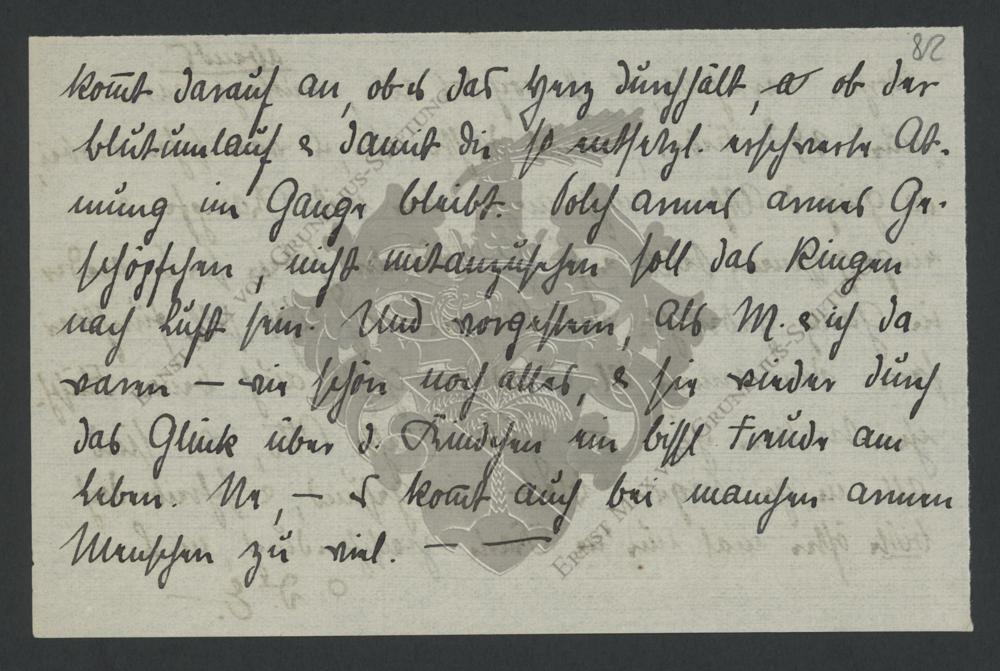 82
kom̅t darauf an, ob es das Herz durchhält, ob der
Blutumlauf & damit die so entsetzl. erschwerte At-
mung im Gange bleibt. Solch armes armes Ge-
schöpfchen, nicht mitanzusehen soll das Ringen
nach Luft sein. Und vorgestern, als M. & ich da
waren — wie schön noch alles, & sie wieder durch
das Glück über d. Kindchen ein bissl Freude am
Leben. Ne, — es kom̅t auch bei manchen armen
Menschen zu viel. — —
ERNST MAX VON GRUNELIUS-STIFTUNG
ERNST MAX VON GRUNELIUS-STIFTUNG